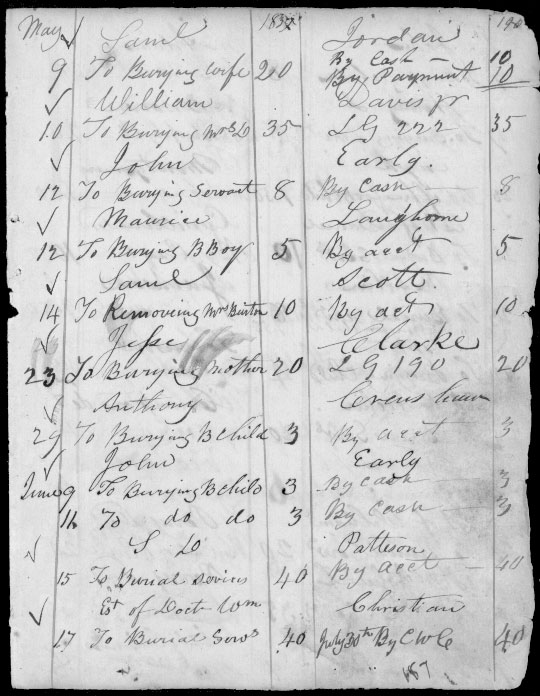 May 1837 190
✓ Saml Jordan
By Cash — 10
9 To Burying wife 20 By Payment 10
✓ William Daves jr
10 To Burying Mrs D 35 LG 222 35
✓ John Early.
12 To Burying Servant 8 By Cash — 8
✓ Maurice Langhorne
12 To Burying B Boy 5 By acct 5
✓ Saml Scott.
14 To Removeing Mrs Burton 10 By act 10
✓ Jesse Clarke
23 To Burying Mother 20 LG 190 20
✓ Anthony
29 To Burying B Child 3 By acct — 3
✓ John Early
June 9 To Burying B Child 3 By Cash — 3
11 To do do 3 By Cash — 3
✓ S D Patteson
15 To Burial 40 By acct — 40
✓ Est of Doct Wm Christian
17 To Burial Servs 40 July 30th By C W C 40
187